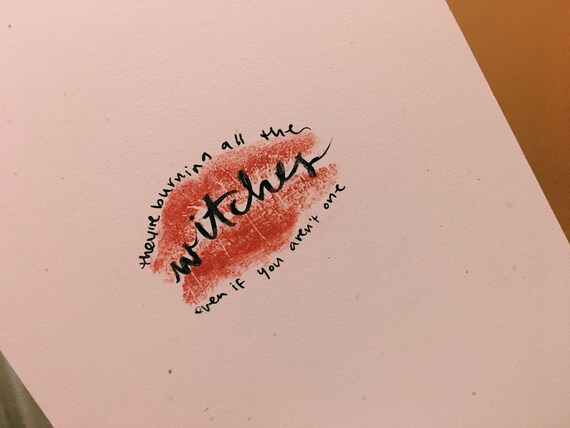 they're burning all the
witches
even if you aren't one